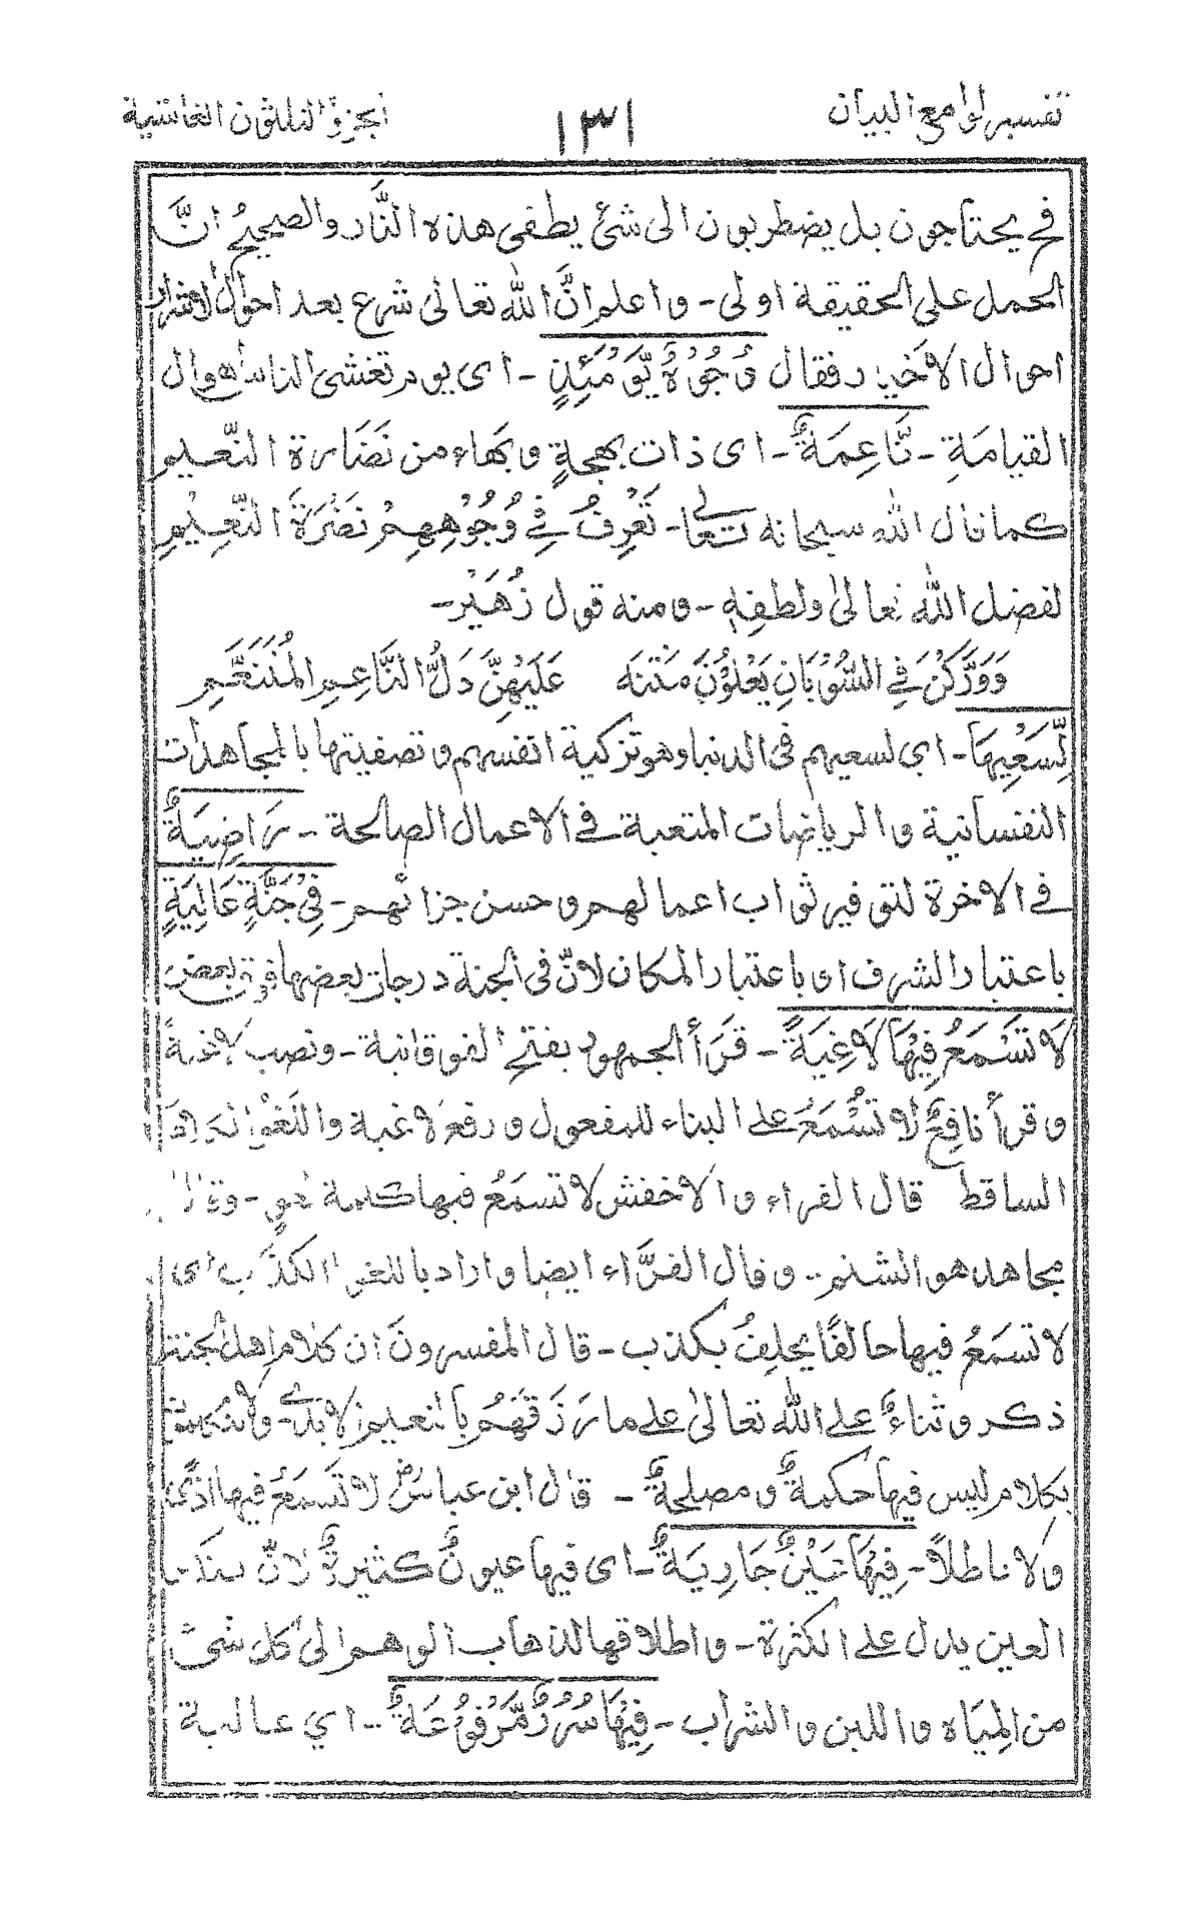 تفسير لوامع البيان ١٣١ الجزؤ الثلثون الغاشية
فح يحتاجون بل يضطربون الى شئ يطفى هذه النّار والصحيح انَّ
الحمل على الحقيقة اولى - واعلم انَّ الله تعالى شرع بعد احوال الاشرار
احوال الاخيار فقال وُجُوْهٌ يَّوْمَئِذٍ - اى يوم تغشى الناس اهوال
القيامَةِ - نَّاعِمَةٌ - اى ذات بهجةٍ وبَهاء من نَضَارة النّعيم
كما قال الله سبحانه تعالى - تَعْرِفُ فِي وُجُوْهِهِمْ نَضْرَةَ النَّعِيْمِ
لفضل الله تعالىٰ ولطفِهٖ - ومنه قول زُهَيْر -
وَوَرَّكْنَ فِي السُّوْبَانِ يَعْلُوْنَ مَتْنَه عَلَيْهِنَّ دَلُّ النَّاعِمِ المُتَنَعَّمِ
لِّسَعْيِهَا - اى لسعيهم فى الدنيا وهو تزكية انفسهم وتصفيتها بالمجاهدات
النفسانية والرياضات المتعبة في الاعمال الصالحة - رَاضِيَةٌ
في الاخرة لتوفير ثواب اعمالهم وحسن جزائهم - فِيْ جَنَّةٍ عَالِيَةٍ
باعتبار الشرف او باعتبار المكان لانّ فى الجنة درجات بعضها فوق بعض
لَا تَسْمَعُ فِيْهَا لَاغِيَةً - قَرَأ الجمهور بفتح الفوقانية - ونصب لاغية
وقرأ نافِعٌ لا تُسْمَعُ على البناء للمفعول ورفع لاغية واللَغْو
الساقط قال الفراء والاخفش لا تسمَعُ فيها كلمة لغوٍ - وقال
مجاهد هو الشتم - وقال الفرَّاء ايضا واراد باللغو الكذب اى
لا تسمَعُ فيها حالفًا يحلِفُ بكذب - قال المفسرونَ ان كلام اهل الجنة
ذكر وثناءٌ على الله تعالىٰ على ما رَزَقَهُم بالنعيم الابدي - ولا
بكلام ليس فيها حكمةٌ ومصلحةٌ - قال ابن عباسؓ لا تَسمَعُ فيها اذًى
ولا باطلاً - فِيْهَا عَيْنٌ جَارِيَةٌ - اى فيها عيونٌ كثيرةٌ لانّ
العين يدل على الكثرة - واطلاقها لذهاب الوهم الىٰ كل شئ
من المِيَاه واللبن والشراب - فِيْهَا سُرُرٌ مَّرْفُوْعَةٌ - اي عالية